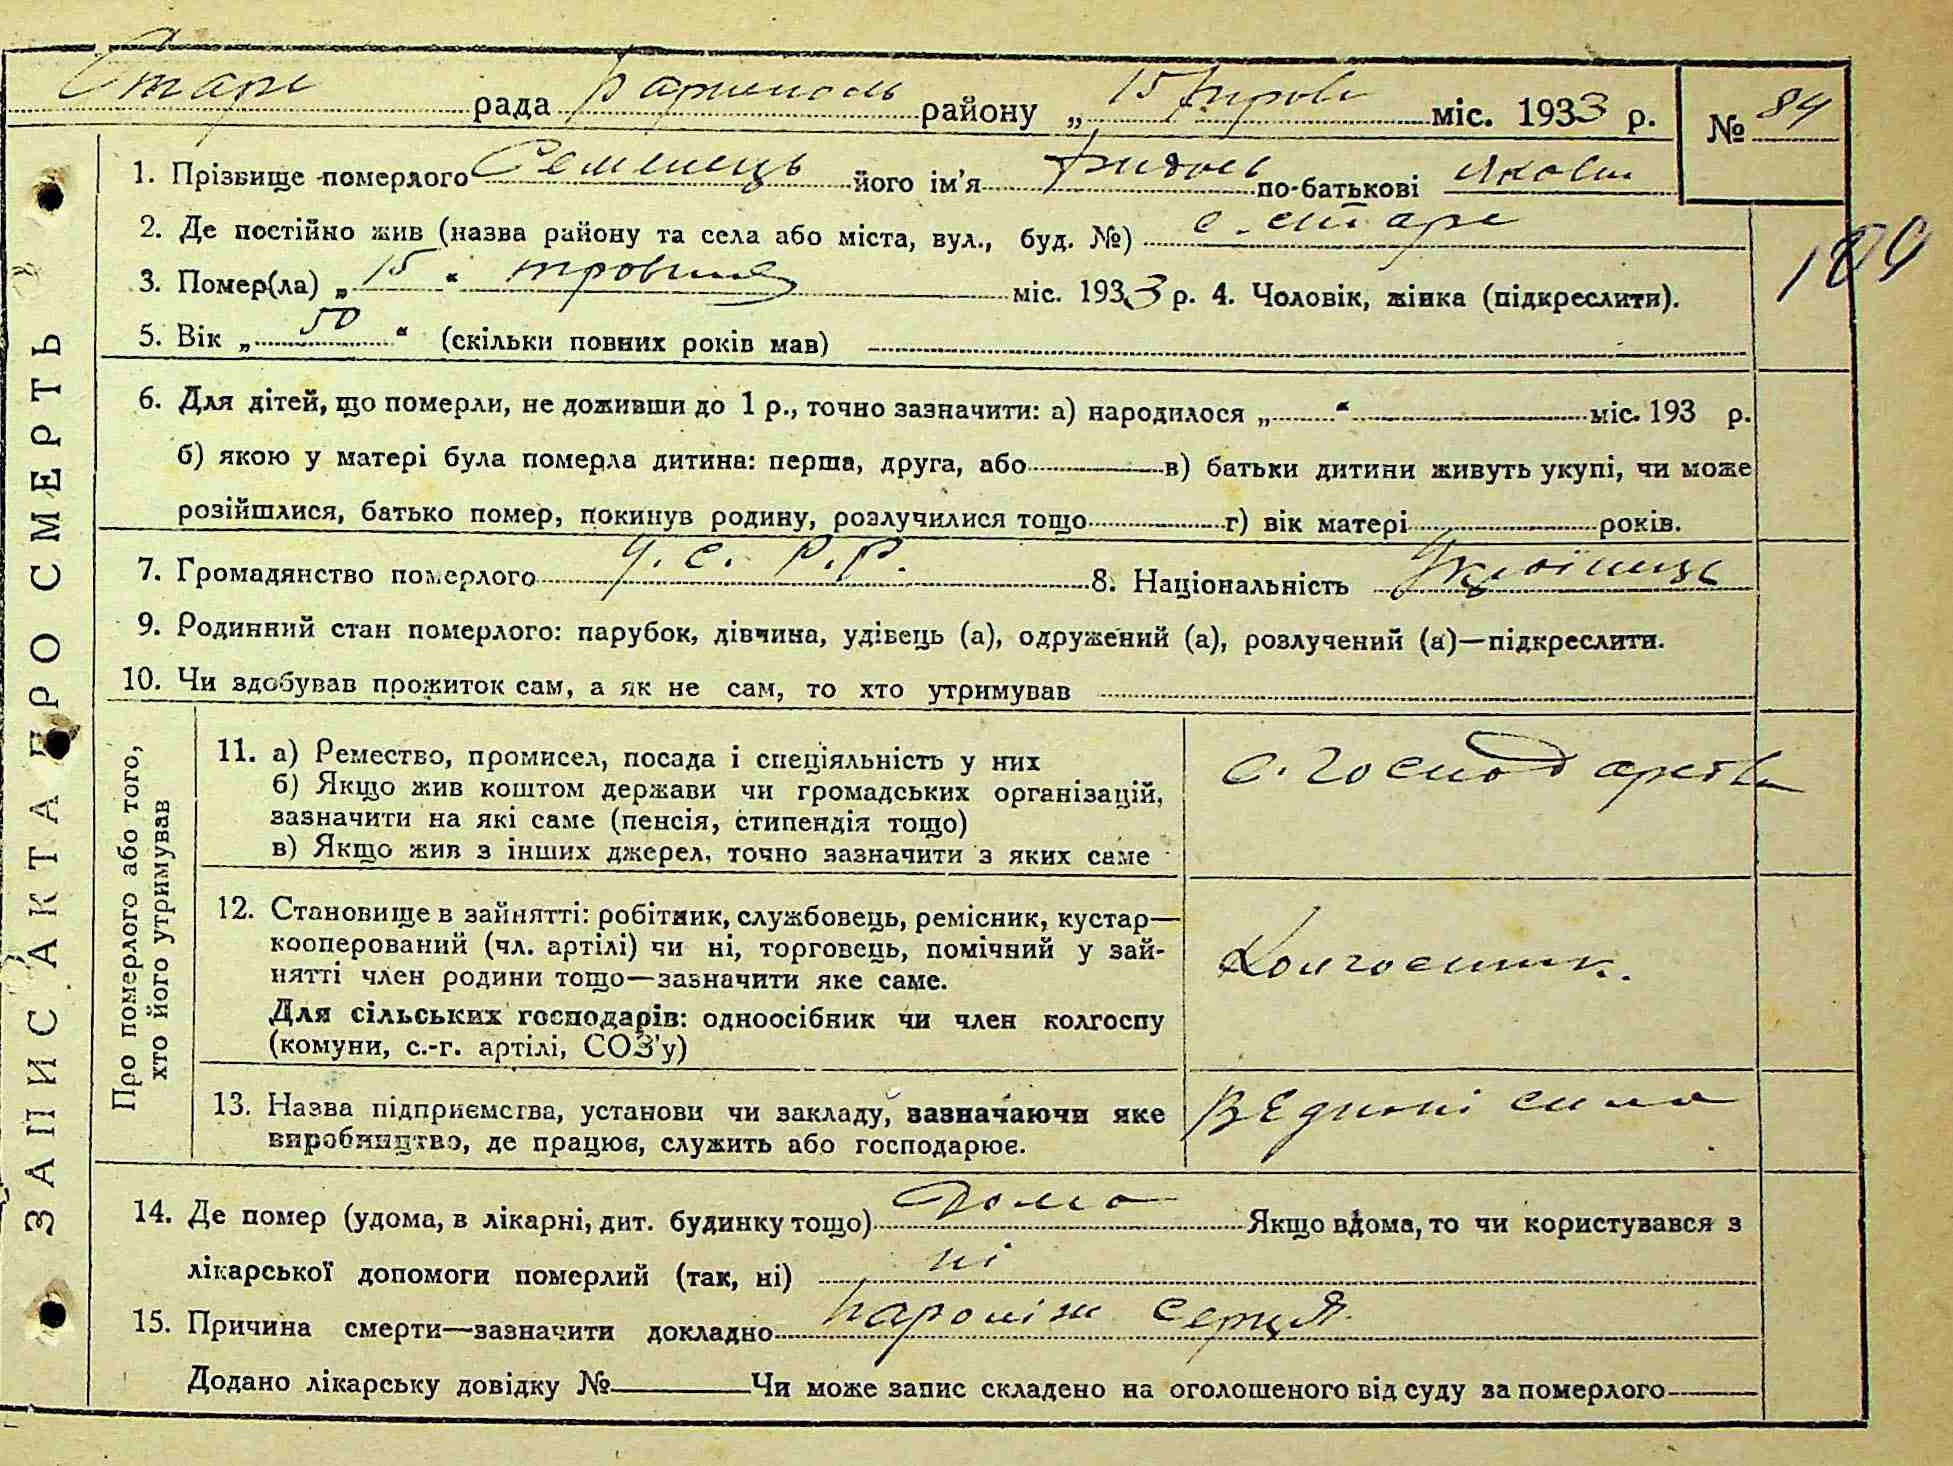 Старе рада Бориспол району „ 15 Трав міс. 1933 р. № 84
1. Прізвище померлого Семенець його ім'я по-батькові Яков
2. Де постійно жив (назва району та села або міста, вул., буд. №) с. Старе
109
3. Помер(ла) „ 15 “ травня міс. 1933 р. 4. Чоловік, жінка (підкреслити).
5. Вік „ 50 “ (скільки повних років мав)
6. Для дітей, що померли, не доживши до 1 р., точно зазначити: а) народилося „ “ міс. 193 р.
б) якою у матері була померла дитина: перша, друга, або в) батьки дитини живуть укупі, чи може
розійшлися, батько помер, покинув родину, розлучилися тощо г) вік матері років.
7. Громадянство померлого У. С. Р. Р. 8. Національність Українець
9. Родинний стан померлого: парубок, дівчина, удівець (а), одружений (а), розлучений (а)—підкреслити.
10. Чи здобував прожиток сам, а як не сам, то хто утримував
ЗАПИС АКТА ПРО СМЕРТЬ
Про померлого або того,
хто його утримував
11. а) Ремество, промисел, посада і спеціяльність у них
б) Якщо жив коштом держави чи громадських організацій,
зазначити на які саме (пенсія, стипендія тощо)
в) Якщо жив з інших джерел, точно зазначити з яких саме
с. господарства
12. Становище в зайнятті: робітник, службовець, ремісник, кустар—
кооперований (чл. артілі) чи ні, торговець, помічний у зай-
нятті член родини тощо—зазначити яке саме.
Для сільських господарів: одноосібник чи член колгоспу
(комуни, с.-г. артілі, СОЗ'у)
Колгоспник.
13. Назва підприємства, установи чи закладу, зазначаючи яке
виробництво, де працює, служить або господарює.
В Єдності сила
14. Де помер (удома, в лікарні, дит. будинку тощо) Дома Якщо вдома, то чи користувався з
лікарської допомоги померлий (так, ні) ні
15. Причина смерти—зазначити докладно серця
Додано лікарську довідку № Чи може запис складено на оголошеного від суду за померлого